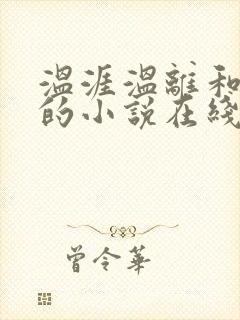 温涯温離和
的小说在綫
曾令華